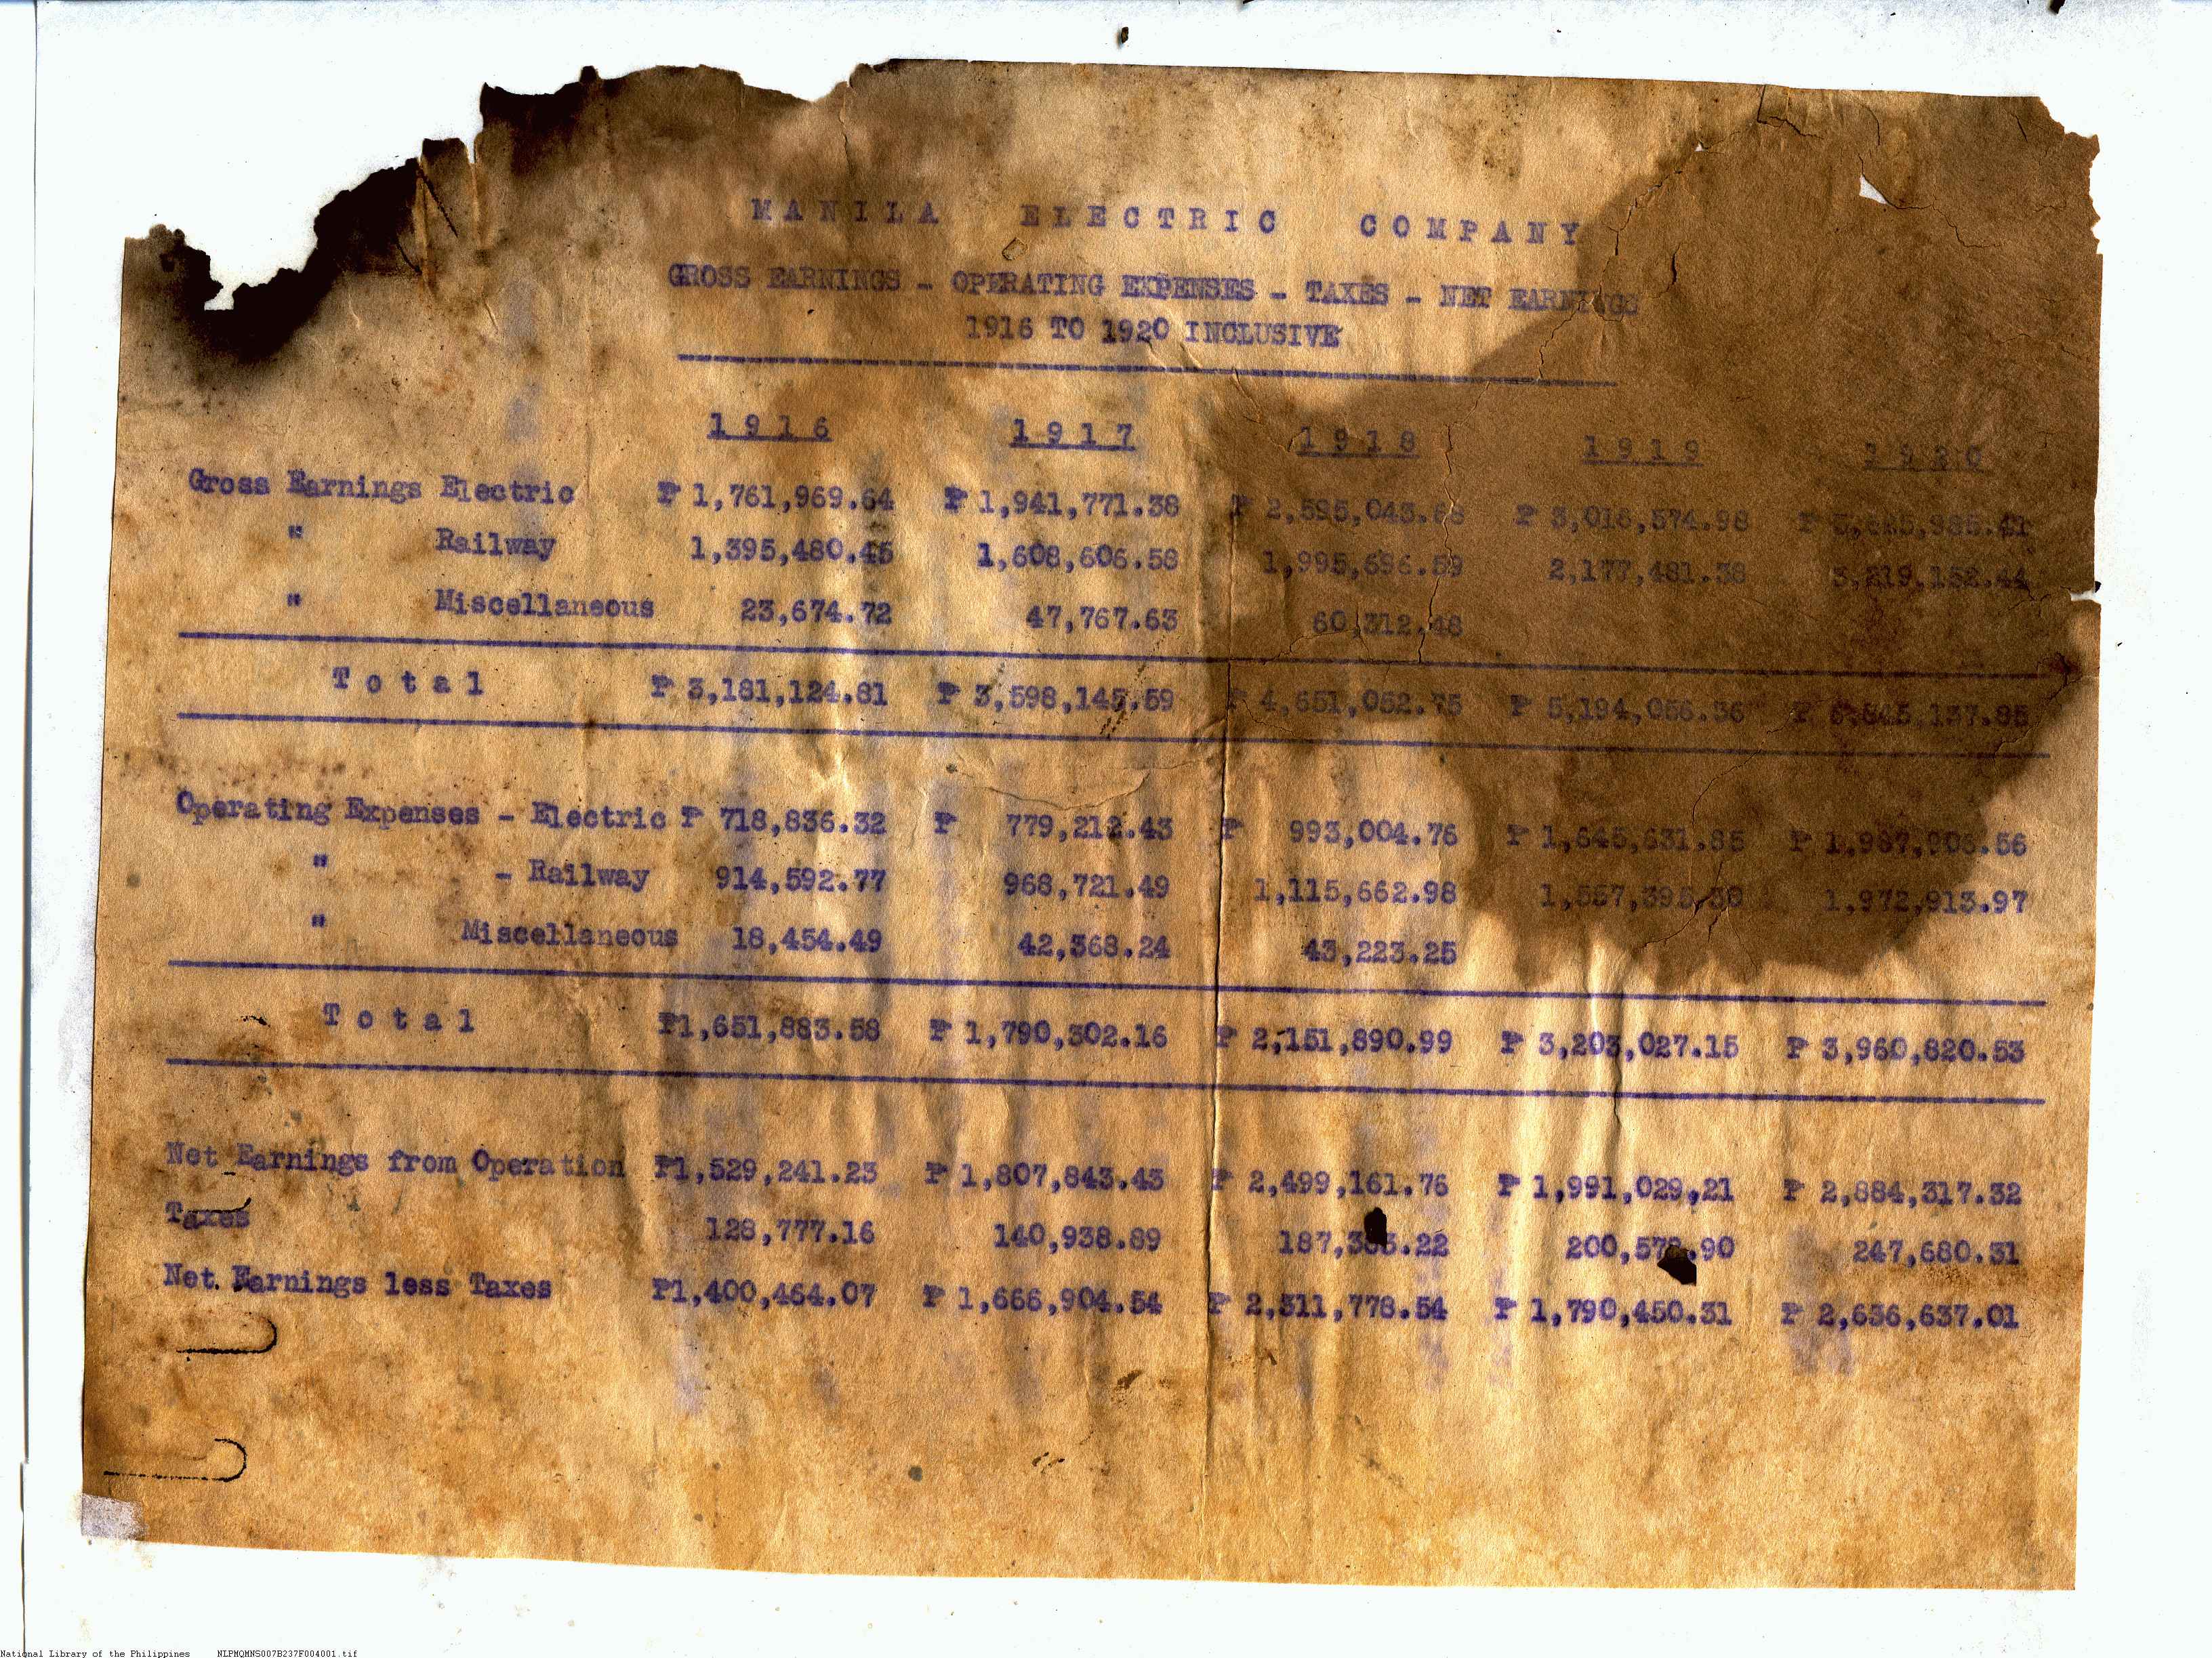 MANILA ELECTRIC COMPANY
GROSS EARNINGS - OPERATING EXPENSES - TAXES - NET EARNINGS
1916 TO 1920 INCLUSIVE
1916 1917 1918 1919 1920
Gross Earnings Electric ₱ 1,761,969.64 ₱ 1,941,771.38 ₱ 2,595,043.68 ₱ 3,016,574.98 ₱ 3,625,985.41
" Railway 1,395,480.45 1,608,606.58 1,995,696.59 2,177,481.38 3,219,152.44
" Miscellaneous 23,674.72 47,767.63 60,312.48
Total ₱ 3,181,124.81 ₱ 3,598,145.59 ₱ 4,651,052.75 ₱ 5,194,056.36 ₱ 6,845,137.85
Operating Expenses - Electric ₱ 718,836.32 ₱ 779,212.43 ₱ 993,004.76 ₱ 1,645,631.85 ₱ 1,987,906.56
" - Railway 914,592.77 968,721.49 1,115,662.98 1,557,395.30 1,972,913.97
" Miscellaneous 18,454.49 42,368.24 43,223.25
Total ₱1,651,883.58 ₱ 1,790,302.16 ₱ 2,151,890.99 ₱ 3,203,027.15 ₱ 3,960,820.53
Net Earnings from Operation ₱1,529,241.23 ₱ 1,807,843.43 ₱ 2,499,161.76 ₱ 1,991,029,21 ₱ 2,884,317.32
Taxes 128,777.16 140,938.89 187,383.22 200,578.90 247,680.31
Net Earnings less Taxes ₱1,400,464.07 ₱ 1,666,904.54 ₱ 2,311,778.54 ₱ 1,790,450.31 ₱ 2,636,637.01
National Library of the Philippines NLPMQMNS007B237F004001.tif